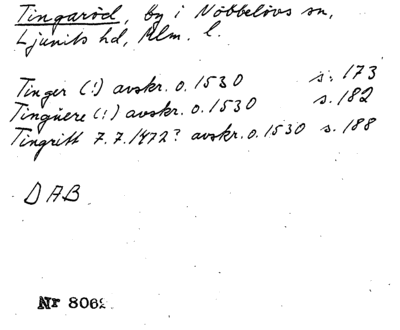 Tingaröd, by i Nöbbelövs sn,
Ljunits hd, Mlm. l.
Tinger (!) avskr. o. 1530 s. 173
Tingüere (!) avskr. o. 1530 s. 182
Tingritt 7.7.1472? avskr. o. 1530 s. 188
DAB
Nr 8062